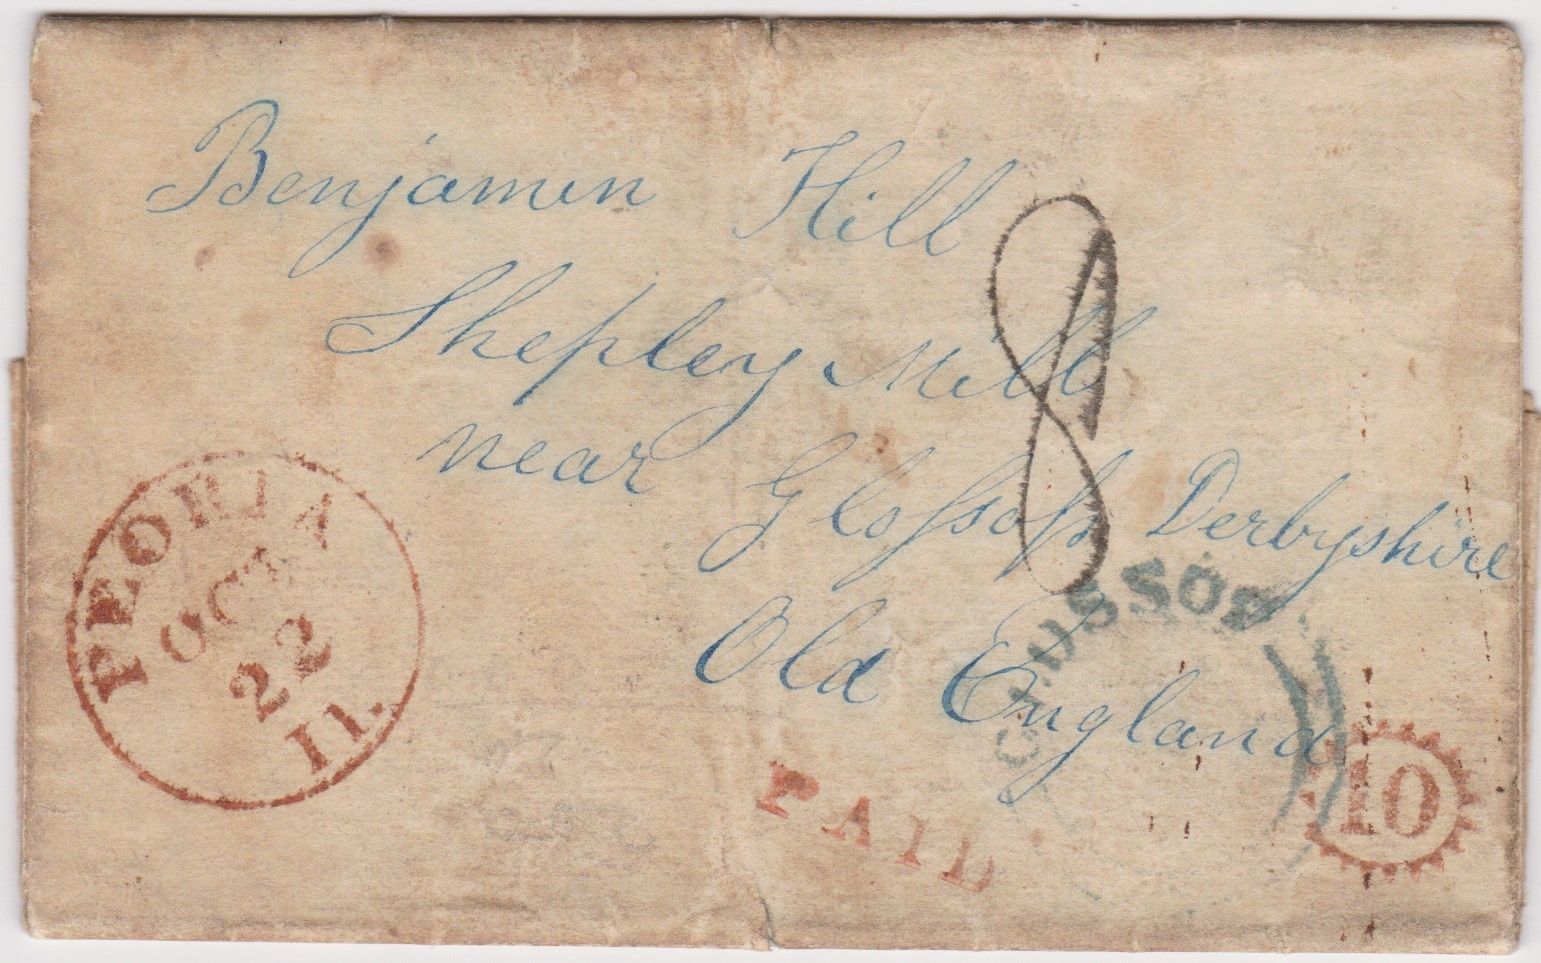 Benjamin Hill
8
Shepley Mill
near Glossop Derbyshire
Old England
PEORIA
OCT
22
Il.
GLOSSOP
PAID
10